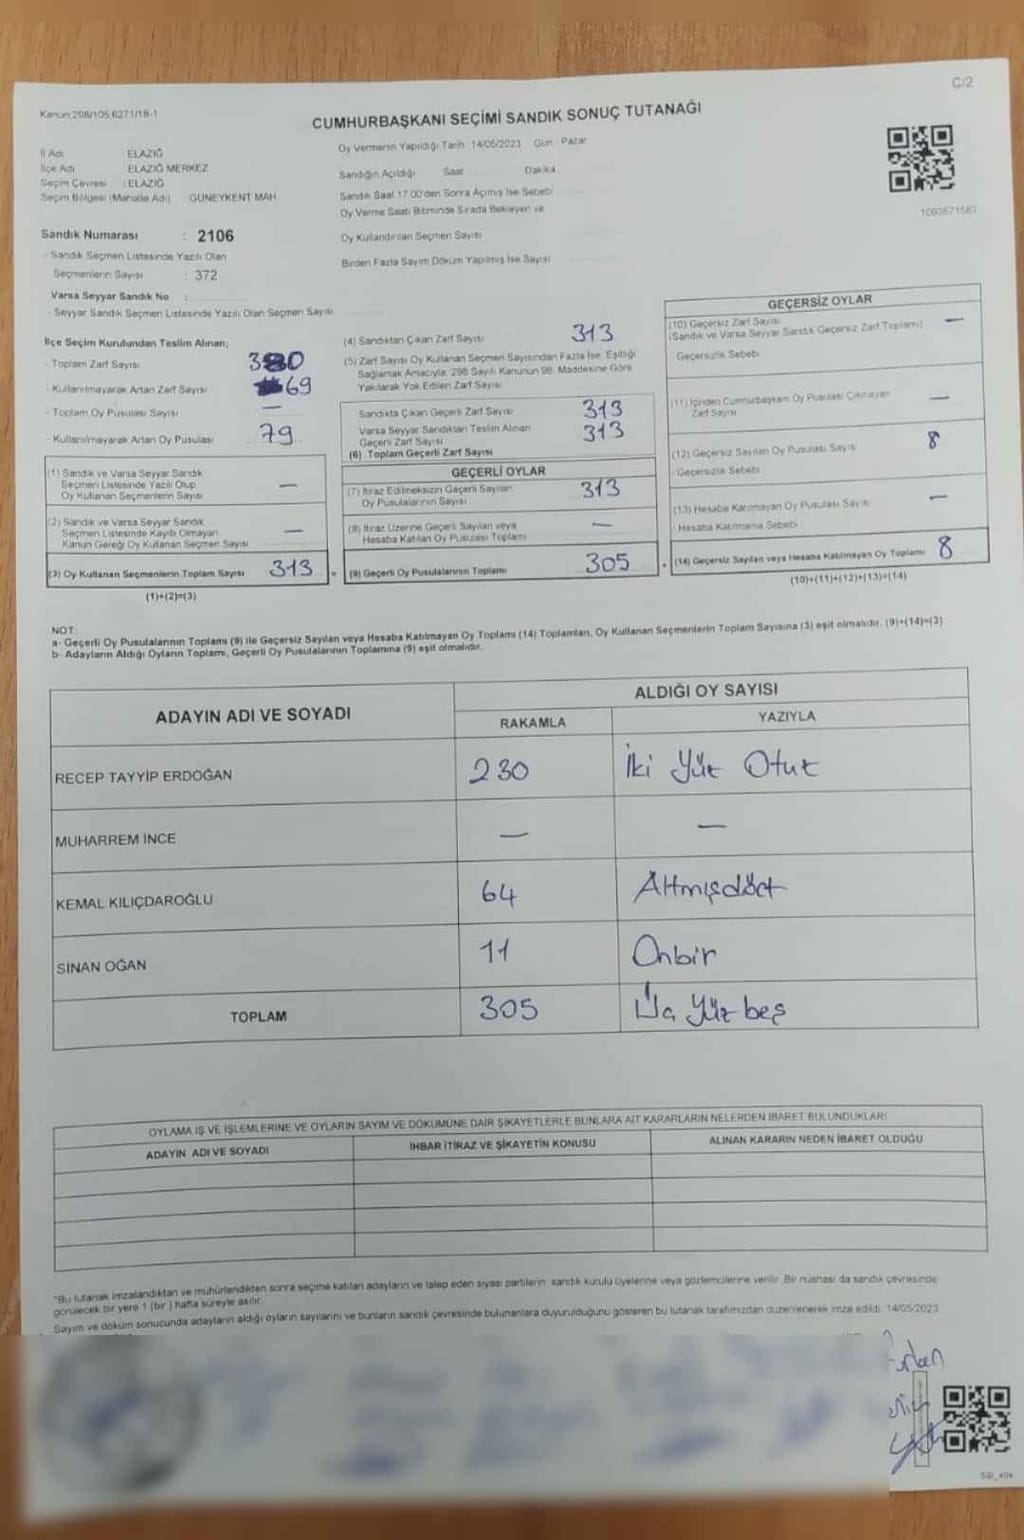 C/2
Kanun 298/105,6271/18-1
CUMHURBAŞKANI SEÇİMİ SANDIK SONUÇ TUTANAĞI
İl Adı ELAZIĞ
İlçe Adı ELAZIĞ MERKEZ
Seçim Çevresi : ELAZIĞ
Seçim Bölgesi (Mahalle Adı) GÜNEYKENT MAH
Sandık Numarası : 2106
- Sandık Seçmen Listesinde Yazılı Olan
Seçmenlerin Sayısı : 372
Varsa Seyyar Sandık No :
- Seyyar Sandık Seçmen Listesinde Yazılı Olan Seçmen Sayısı
Oy Vermenin Yapıldığı Tarih 14/05/2023 Gün Pazar
Sandığın Açıldığı Saat Dakika
Sandık Saat 17.00'den Sonra Açımış İse Sebebi
Oy Verme Saati Bitiminde Sırada Bekleyen ve
Oy Kullandırılan Seçmen Sayısı
Birden Fazla Sayım Döküm Yapılmış İse Sayısı
1093571587
İlçe Seçim Kurulundan Teslim Alınan;
- Toplam Zarf Sayısı 380
- Kullanılmayarak Artan Zarf Sayısı 69
- Toplam Oy Pusulası Sayısı —
- Kullanılmayarak Artan Oy Pusulası 79
(1) Sandık ve Varsa Seyyar Sandık
Seçmen Listesinde Yazılı Olup
Oy Kullanan Seçmenlerin Sayısı —
(2) Sandık ve Varsa Seyyar Sandık
Seçmen Listesinde Kayıtlı Olmayan
Kanun Gereği Oy Kullanan Seçmen Sayısı —
(3) Oy Kullanan Seçmenlerin Toplam Sayısı 313
(1)+(2)=(3)
(4) Sandıktan Çıkan Zarf Sayısı 313
(5) Zarf Sayısı Oy Kullanan Seçmen Sayısından Fazla İse, Eşitliği
Sağlamak Amacıyla, 298 Sayılı Kanunun 98. Maddesine Göre
Yakılarak Yok Edilen Zarf Sayısı
Sandıkta Çıkan Geçerli Zarf Sayısı 313
Varsa Seyyar Sandıktan Teslim Alınan
Geçerli Zarf Sayısı 313
(6) Toplam Geçerli Zarf Sayısı
GEÇERLİ OYLAR
(7) İtiraz Edilmeksizin Geçerli Sayılan
Oy Pusulalarının Sayısı 313
(8) İtiraz Üzerine Geçerli Sayılan veya
Hesaba Katılan Oy Pusulası Toplamı —
(9) Geçerli Oy Pusulalarının Toplamı 305
GEÇERSİZ OYLAR
(10) Geçersiz Zarf Sayısı
(Sandık ve Varsa Seyyar Sandık Geçersiz Zarf Toplamı) —
Geçersizlik Sebebi
(11) İçinden Cumhurbaşkanı Oy Pusulası Çıkmayan
Zarf Sayısı —
(12) Geçersiz Sayılan Oy Pusulası Sayısı 8
- Geçersizlik Sebebi
(13) Hesaba Katılmayan Oy Pusulası Sayısı —
- Hesaba Katılmama Sebebi
(14) Geçersiz Sayılan veya Hesaba Katılmayan Oy Toplamı 8
(10)+(11)+(12)+(13)=(14)
NOT:
a- Geçerli Oy Pusulalarının Toplamı (9) ile Geçersiz Sayılan veya Hesaba Katılmayan Oy Toplamı (14) Toplamları, Oy Kullanan Seçmenlerin Toplam Sayısına (3) eşit olmalıdır. (9)+(14)=(3)
b- Adayların Aldığı Oyların Toplamı, Geçerli Oy Pusulalarının Toplamına (9) eşit olmalıdır.
ADAYIN ADI VE SOYADI ALDIĞI OY SAYISI
RAKAMLA YAZIYLA
RECEP TAYYİP ERDOĞAN 230 İki Yüz Otuz
MUHARREM İNCE — —
KEMAL KILIÇDAROĞLU 64 Altmışdört
SİNAN OĞAN 11 Onbir
TOPLAM 305 Üç Yüz beş
OYLAMA İŞ VE İŞLEMLERİNE VE OYLARIN SAYIM VE DÖKÜMÜNE DAİR ŞİKAYETLERLE BUNLARA AİT KARARLARIN NELERDEN İBARET BULUNDUKLARI
ADAYIN ADI VE SOYADI İHBAR İTİRAZ VE ŞİKAYETİN KONUSU ALINAN KARARIN NEDEN İBARET OLDUĞU
*Bu tutanak imzalandıktan ve mühürlendikten sonra seçime katılan adayların ve talep eden siyasi partilerin sandık kurulu üyelerine veya gözlemcilerine verilir. Bir nüshası da sandık çevresinde
görülecek bir yere 1 (bir) hafta süreyle asılır.
Sayım ve döküm sonucunda adayların aldığı oyların sayılarını ve bunların sandık çevresinde bulunanlara duyurulduğunu gösteren bu tutanak tarafımızdan düzenlenerek imza edildi. 14/05/2023